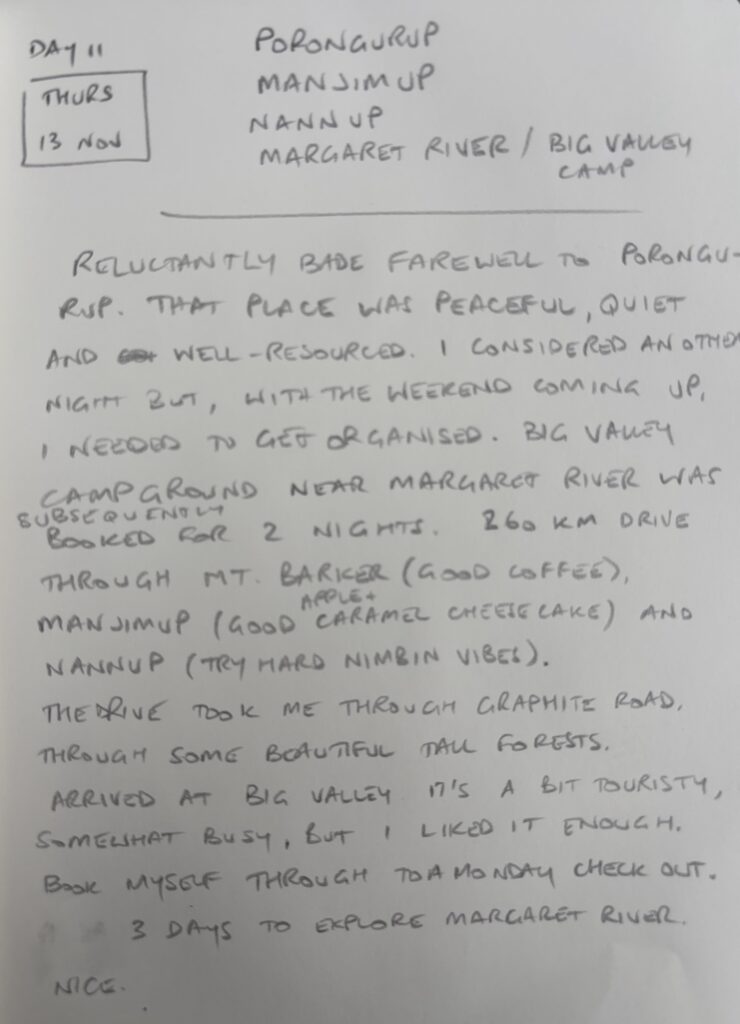 DAY 11
THURS
13 NOV
PORONGURUP
MANJIMUP
NANNUP
MARGARET RIVER / BIG VALLEY
CAMP
RELUCTANTLY BADE FAREWELL TO PORONGU-
RUP. THAT PLACE WAS PEACEFUL, QUIET
AND WELL-RESOURCED. I CONSIDERED ANOTHER
NIGHT BUT, WITH THE WEEKEND COMING UP,
I NEEDED TO GET ORGANISED. BIG VALLEY
CAMPGROUND NEAR MARGARET RIVER WAS
SUBSEQUENTLY
BOOKED FOR 2 NIGHTS. 260 KM DRIVE
THROUGH MT. BARKER (GOOD COFFEE),
APPLE +
MANJIMUP (GOOD CARAMEL CHEESECAKE) AND
NANNUP (TRY HARD NIMBIN VIBES).
THE DRIVE TOOK ME THROUGH GRAPHITE ROAD,
THROUGH SOME BEAUTIFUL TALL FORESTS.
ARRIVED AT BIG VALLEY IT'S A BIT TOURISTY,
SOMEWHAT BUSY, BUT I LIKED IT ENOUGH.
BOOK MYSELF THROUGH TO A MONDAY CHECK OUT.
3 DAYS TO EXPLORE MARGARET RIVER.
NICE.